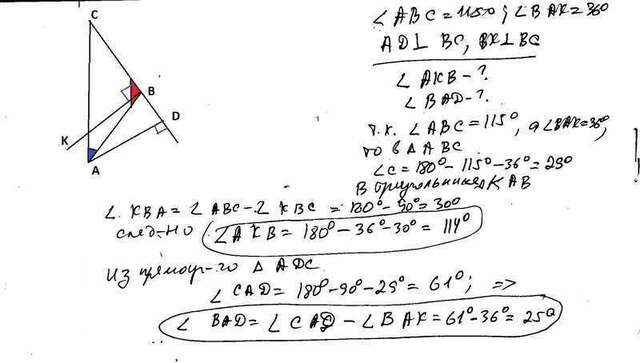 C
B
D
K
A
∠ABC = 115°; ∠BAK = 36°
AD⊥ BC, BK⊥BC
∠ AKB - ?
∠ BAD - ?
т.к. ∠ABC = 115°, а ∠BAK = 36°,
то в △ ABC
∠C = 180° - 115° - 36° = 29°
В треугольнике KAB
∠ KBA = ∠ABC - ∠ KBC = 120° - 90° = 30°
след-но ∠AKB = 180° - 36° - 30° = 114°
Из прямоуг-го △ ADC
∠ CAD = 180° - 90° - 29° = 61°; =>
∠ BAD = ∠ CAD - ∠ BAK = 61° - 36° = 25°